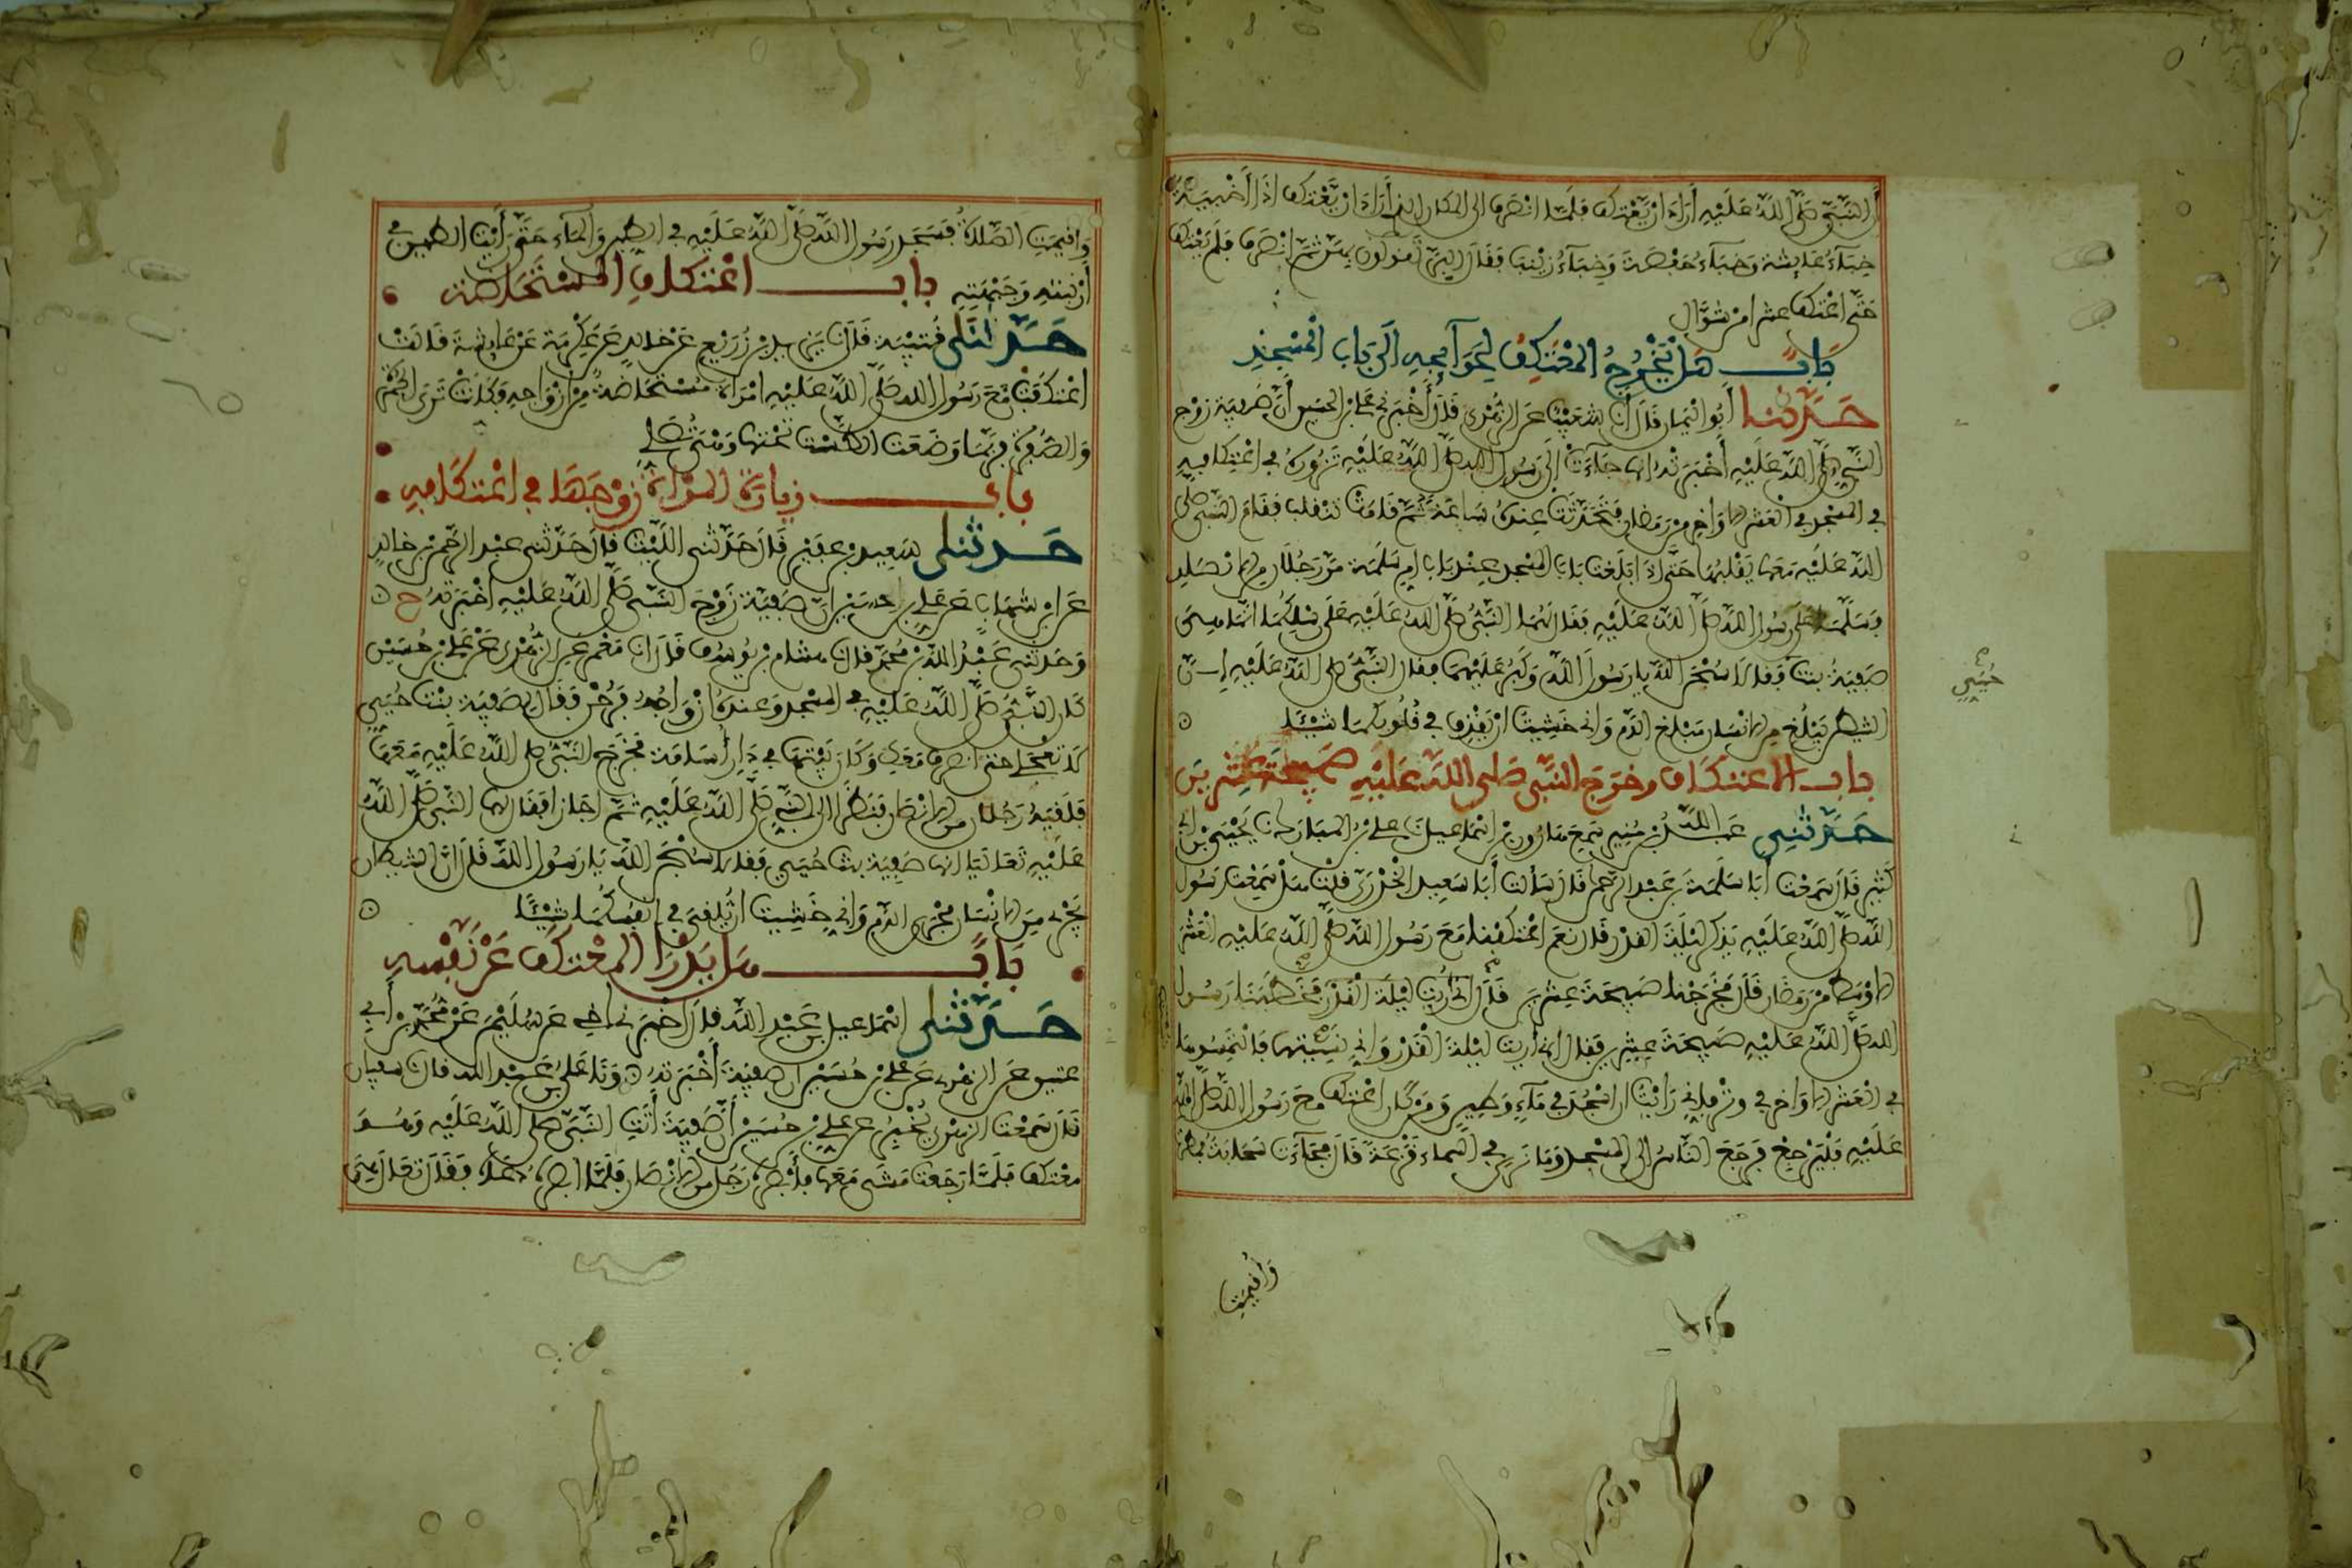 أن النبي صلى الله عليه أراد أن يعتكف فلما انصرف إلى المكان الذي أراد أن يعتكف إذا أخبية
خباء عايشة وخباء حفصة وخباء زينب فقال البر تقولون بهن ثم انصرف فلم يعتكف
حتى اعتكف عشرا من شوال
باب هل يخرج المعتكف لحوايجه إلى باب المسجد
حدثنا أبو اليمان قال أنا شعيب عن الزهري قال أخبرني علي بن الحسين أن صفية زوج
النبي صلى الله عليه أخبرته أنها جاءت إلى رسول الله صلى الله عليه تزوره في اعتكافه
في المسجد في العشر الأواخر من رمضان فتحدثت عنده ساعة ثم قامت تنقلب فقام النبي صلى
الله عليه معها يقلبها حتى إذا بلغت باب المسجد عند باب أم سلمة مر رجلان من الأنصار
فسلما على رسول الله صلى الله عليه فقال لهما النبي صلى الله عليه على رسلكما إنما هي
صفية بنت فقالا سبحن الله يا رسول الله وكبر عليهما فقال النبي صلى الله عليه إن
الشيطن يبلغ من الإنسان مبلغ الدم وإني خشيت أن يقذف في قلوبكما شيئا
حيي
باب الاعتكاف وخروج النبي صلى الله عليه صبيحة عشرين
حدثني عبد الله بن منير سمع هارون بن إسماعيل نا علي بن المبارك نا يحيى بن أبي
كثير قال سمعت أبا سلمة بن عبد الرحمن قال سألت أبا سعيد الخدري قلت هل سمعت رسول
الله صلى الله عليه يذكر ليلة القدر قال نعم اعتكفنا مع رسول الله صلى الله عليه العشر
الأوسط من رمضان قال فخرجنا صبيحة عشرين قال إني أريت ليلة القدر فخطبنا رسول
الله صلى الله عليه صبيحة عشرين فقال إني أريت ليلة القدر وإني نسيتها فالتمسوها
في العشر الأواخر في وتر فإني رأيت أن أسجد في ماء وطين ومن كان اعتكف مع رسول الله صلى الله
عليه فليرجع فرجع الناس إلى المسجد وما نرى في السماء قزعة قال فجاءت سحابة فمطرت
وأقيمت
وأقيمت الصلاة فسجد رسول الله صلى الله عليه في الطين والماء حتى رأيت الطين في
أرنبته وجبهته باب اعتكاف المستحاضة
حدثنا قتيبة قال نا يزيد بن زريع عن خالد عن عكرمة عن عايشة قالت
اعتكفت مع رسول الله صلى الله عليه امرأة مستحاضة من أزواجه فكانت ترى الحمرة
والصفرة فربما وضعت الطست تحتها وهي تصلي
باب زيارة المرأة زوجها في اعتكافه
حدثنا سعيد بن عفير قال حدثني الليث قال حدثني عبد الرحمن بن خالد
عن ابن شهاب عن علي بن حسين أن صفية زوج النبي صلى الله عليه أخبرته ح
وحدثني عبد الله بن محمد قال نا هشام بن يوسف قال أنا معمر عن الزهري عن علي بن حسين
كان النبي صلى الله عليه في المسجد وعنده أزواجه فرحن فقال لصفية بنت حيي
لا تعجلي حتى أنصرف معك وكان بيتها في دار أسامة فخرج النبي صلى الله عليه معها
فلقيه رجلان من الأنصار فنظرا إلى النبي صلى الله عليه ثم أجازا فقال لهما النبي صلى الله
عليه تعاليا إنها صفية بنت حيي فقالا سبحن الله يا رسول الله قال إن الشيطان
يجري من الإنسان مجرى الدم وإني خشيت أن يلقي في أنفسكما شيئا
باب هل يدرأ المعتكف عن نفسه
حدثنا إسماعيل بن عبد الله قال أخبرني أخي عن سليمن عن محمد بن أبي
عتيق عن الزهري عن علي بن حسين أن صفية أخبرته ونا علي بن عبد الله قال نا سفيان
قال سمعت الزهري يخبر عن علي بن حسين أن صفية أتت النبي صلى الله عليه وهو
معتكف فلما رجعت مشى معها فأبصره رجل من الأنصار فلما أبصره دعاه فقال تعال هي